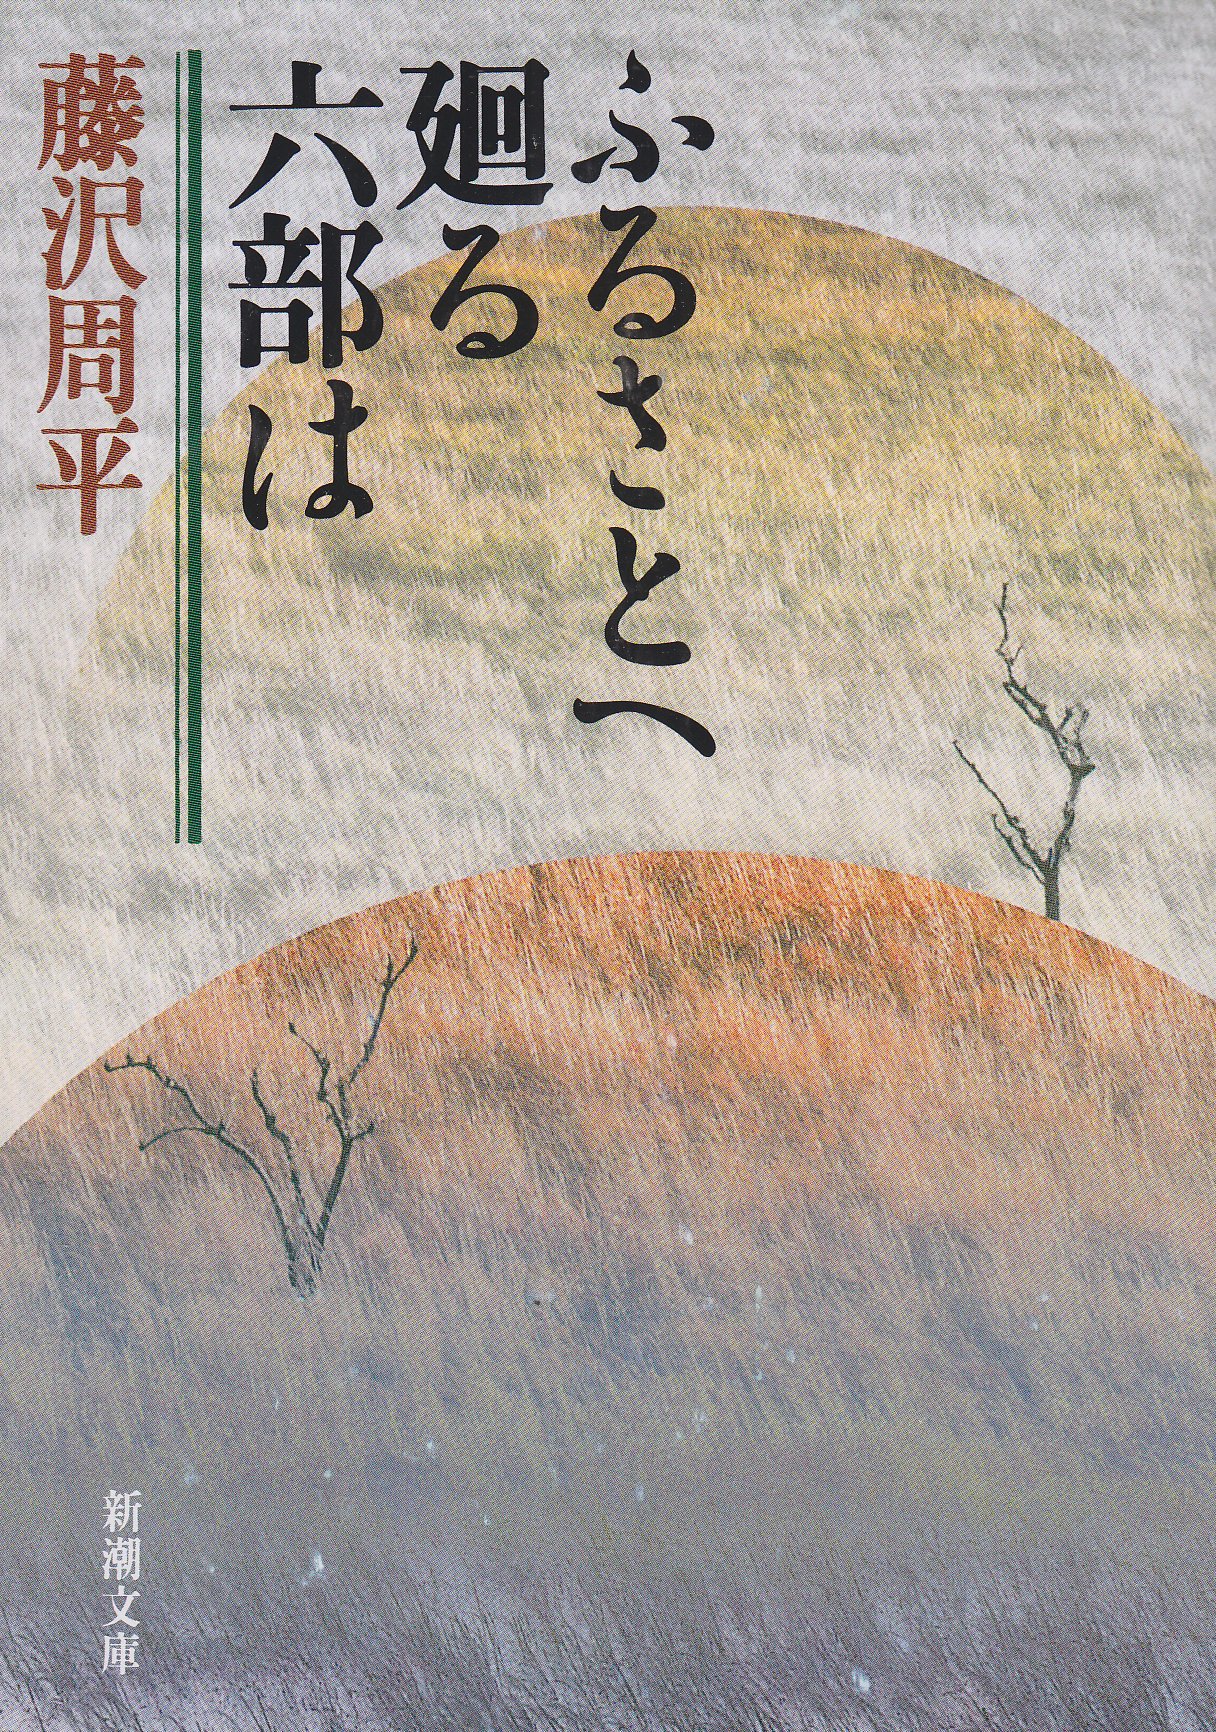 ふるさとへ
廻る
六部は
藤沢周平
新潮文庫